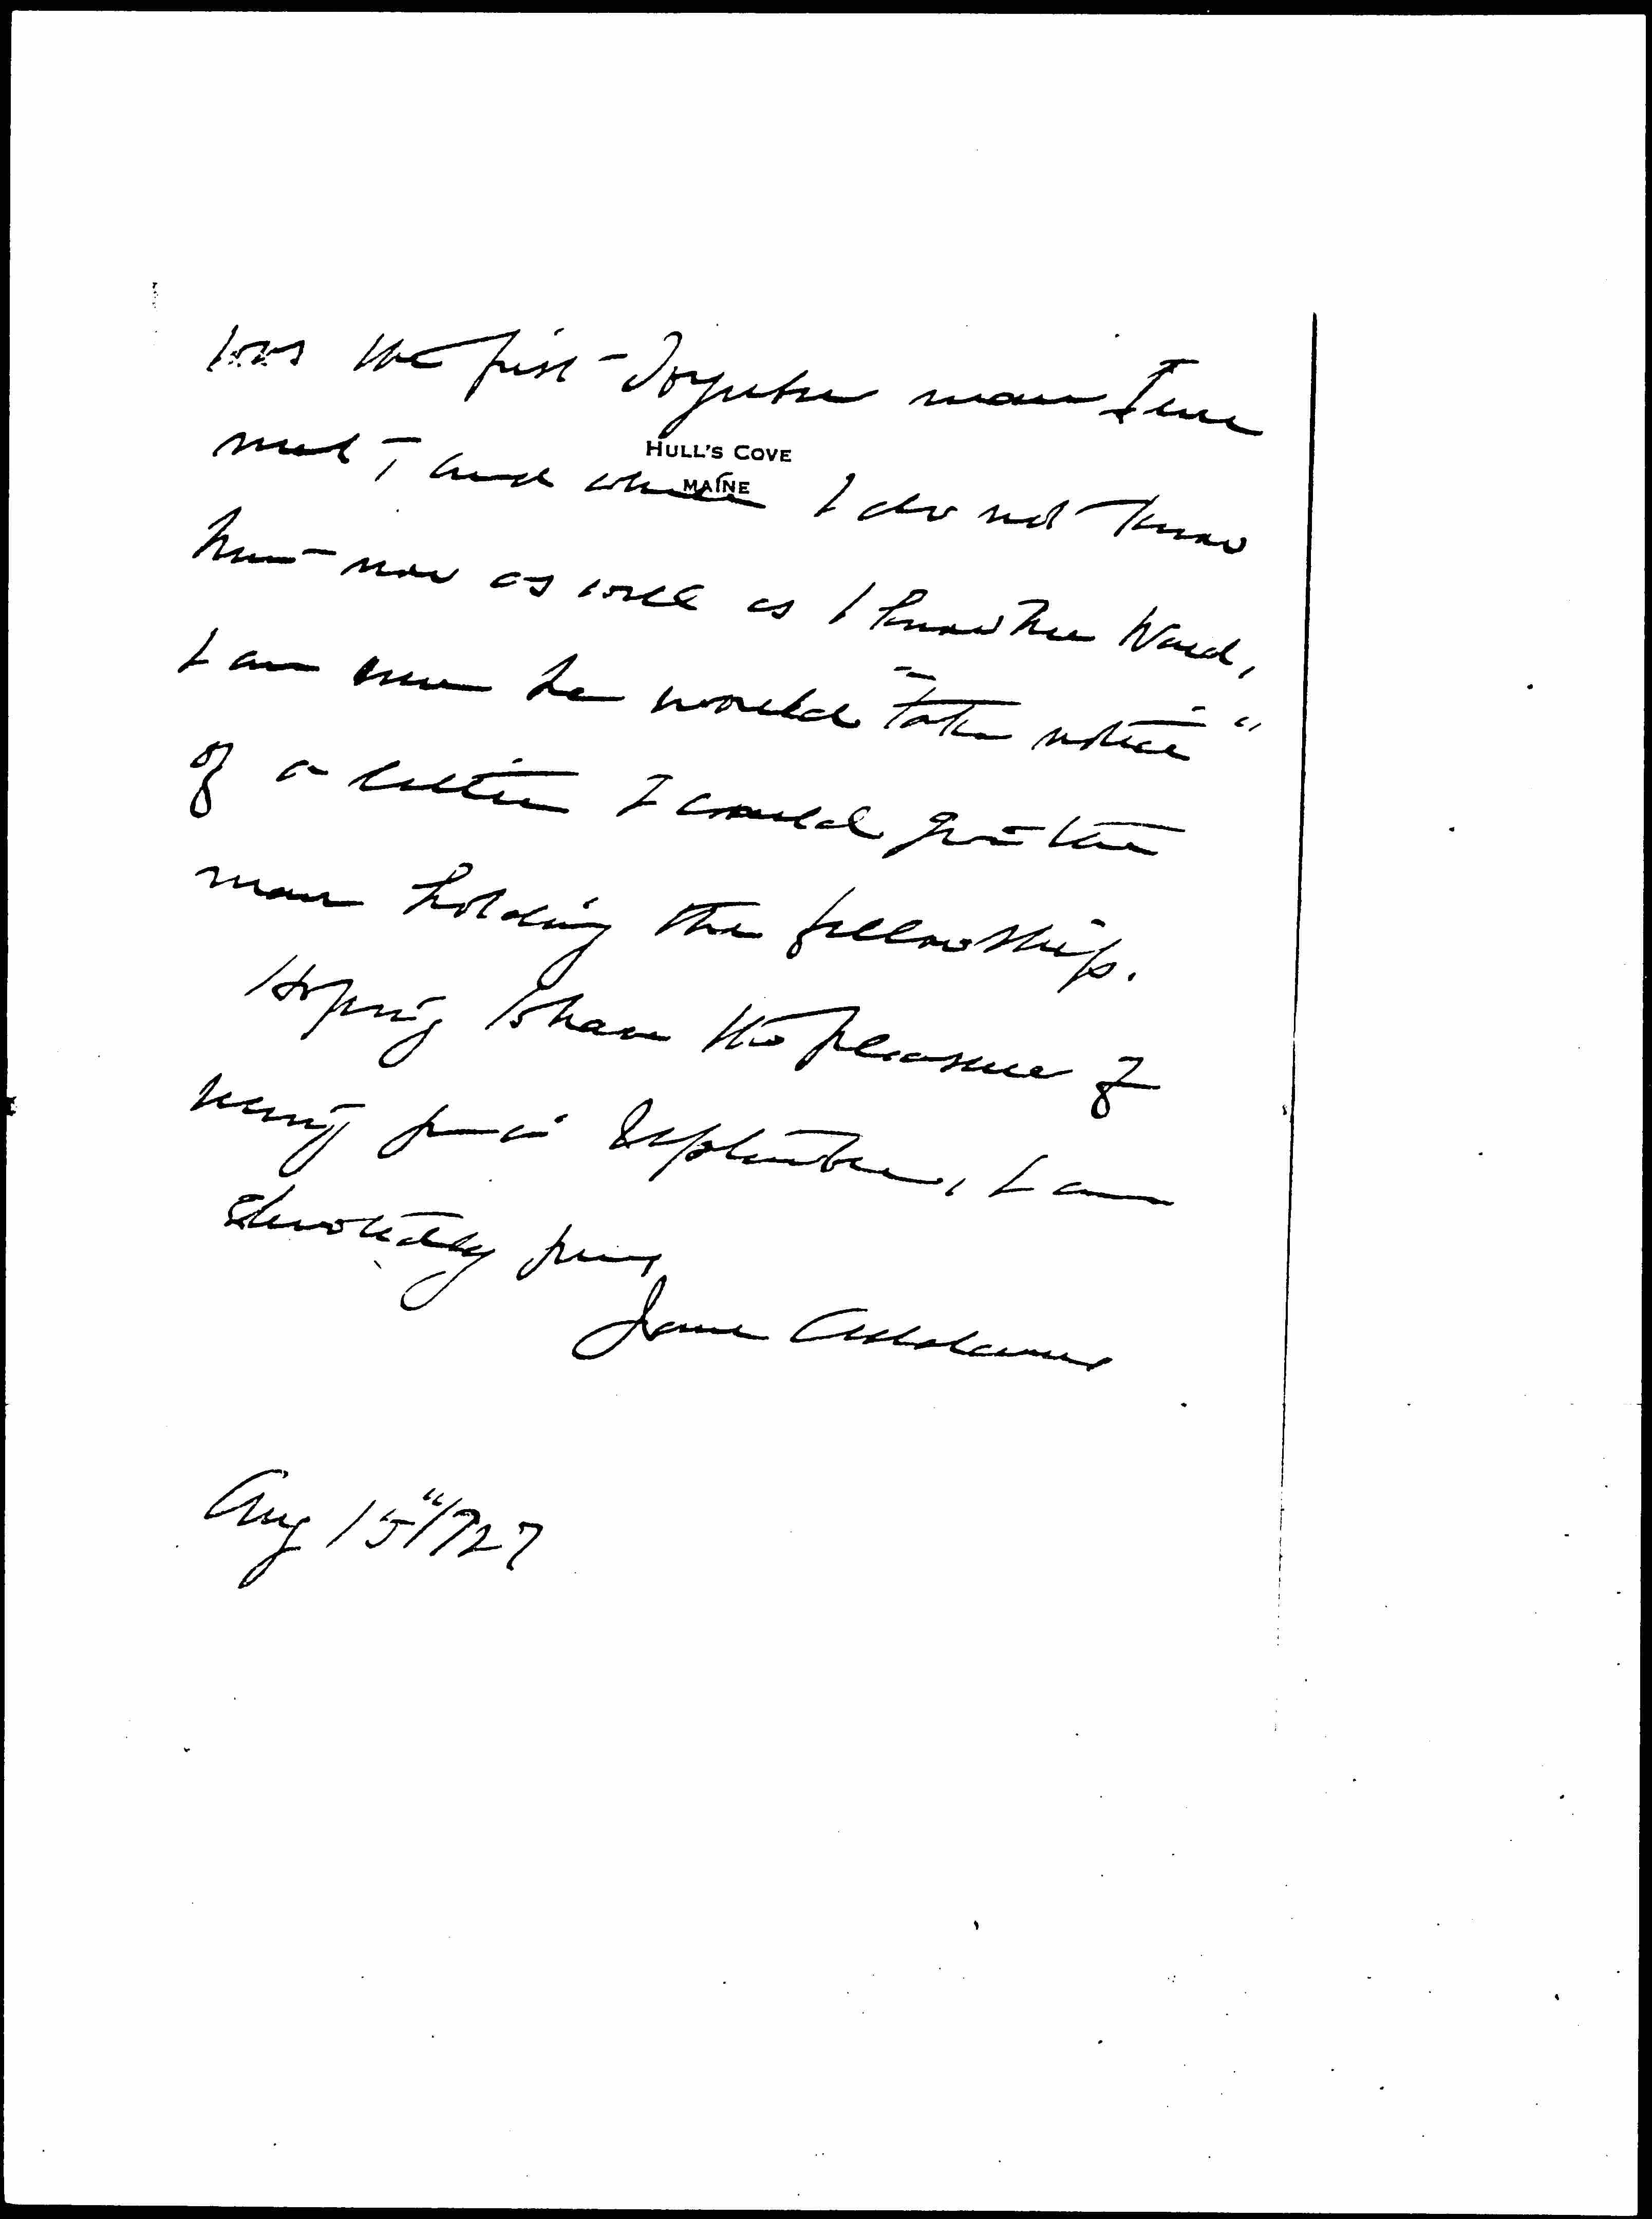 was the first Toynbee man I ever
HULL'S COVE
MAINE
met & and while I do not know
him now as well as I knew Mrs Ward,
I am sure he would "take notice"
of a letter I could give the
man holding the fellowship.
Hoping to have the pleasure of
seeing you in September, I am
devotedly yours
Jane Addams
Aug 15"/927